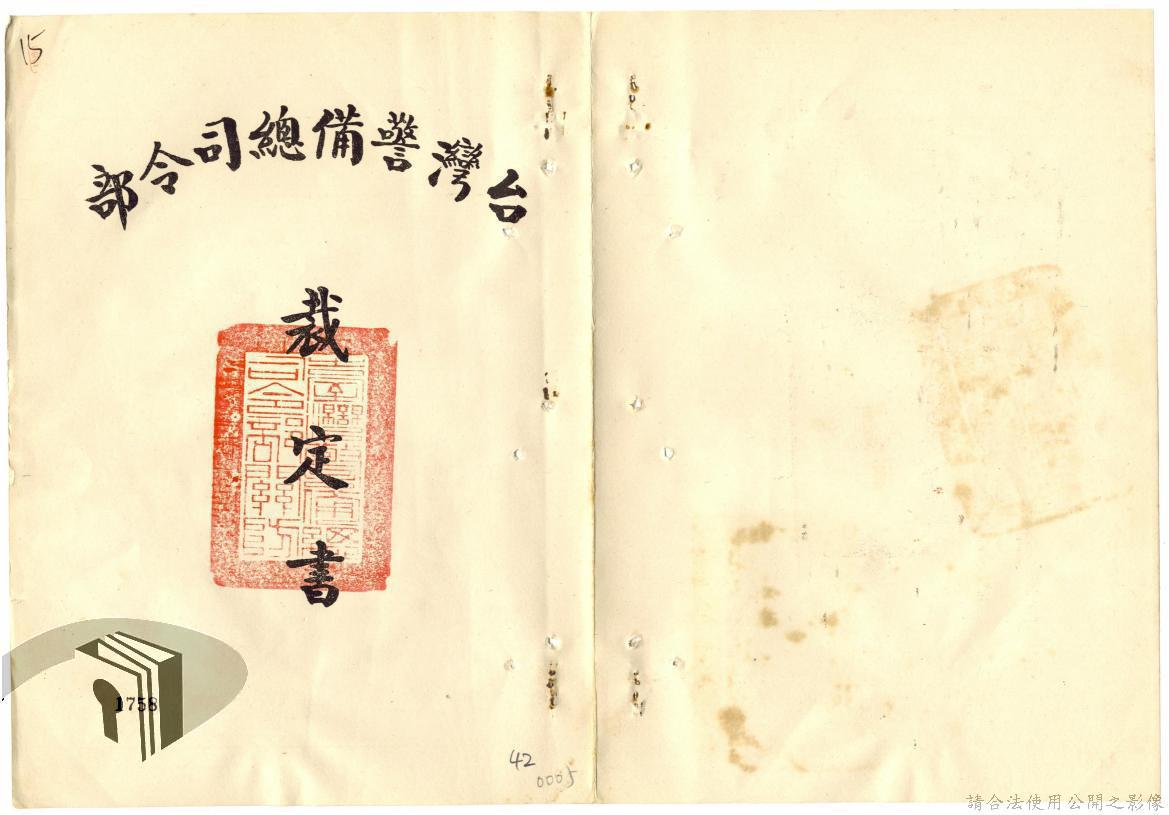 15
台灣警備總司令部
裁定書
1758
42
0005
請合法使用公開之影像